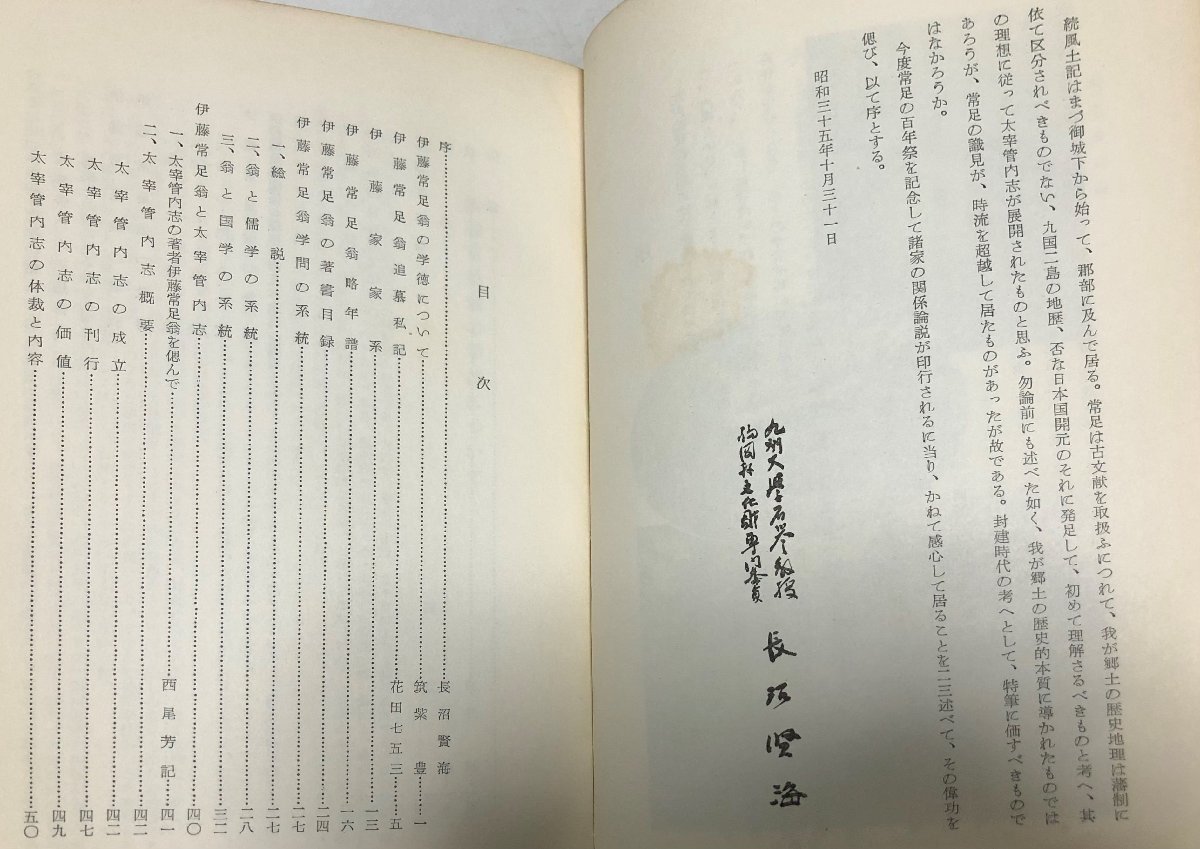 続風土記はまづ御城下から始って、郡部に及んで居る。常足は古文献を取扱ふにつれて、我が郷土の歴史地理は藩制に
依て区分されべきものでない、九国二島の地歴、否な日本国開元のそれに発足して、初めて理解さるべきものと考へ、其
の理想に従って太宰管内志が展開されたものと思ふ。勿論前にも述べた如く、我が郷土の歴史的本質に導かれたものでは
あろうが、常足の識見が、時流を超越して居たものがあった故である。封建時代の考へとして、特筆に価すべきもので
はなかろうか。
今度常足の百年祭を記念して諸家の関係論説が印行されるに当り、かねて感心して居ることを二三述べて、その偉功を
偲び、以て序とする。
昭和三十五年十月三十一日
九州大學名誉教授
福岡縣文化財専門委員
長沼賢海
目次
序……長沼賢海
伊藤常足翁の学徳について……筑紫豊…一
伊藤常足翁追慕私記……花田七五三…五
伊藤家家系……一三
伊藤常足翁略年譜……一六
伊藤常足翁の著書目録……二四
伊藤常足翁学問の系統……二七
一、総説……二七
二、翁と儒学の系統……二八
三、翁と国学の系統……三二
伊藤常足翁と太宰管内志……四〇
一、太宰管内志の著者伊藤常足翁を偲んで……西尾芳記…四一
二、太宰管内志概要……四二
太宰管内志の成立……四二
太宰管内志の刊行……四七
太宰管内志の価値……四九
太宰管内志の体裁と内容……五〇